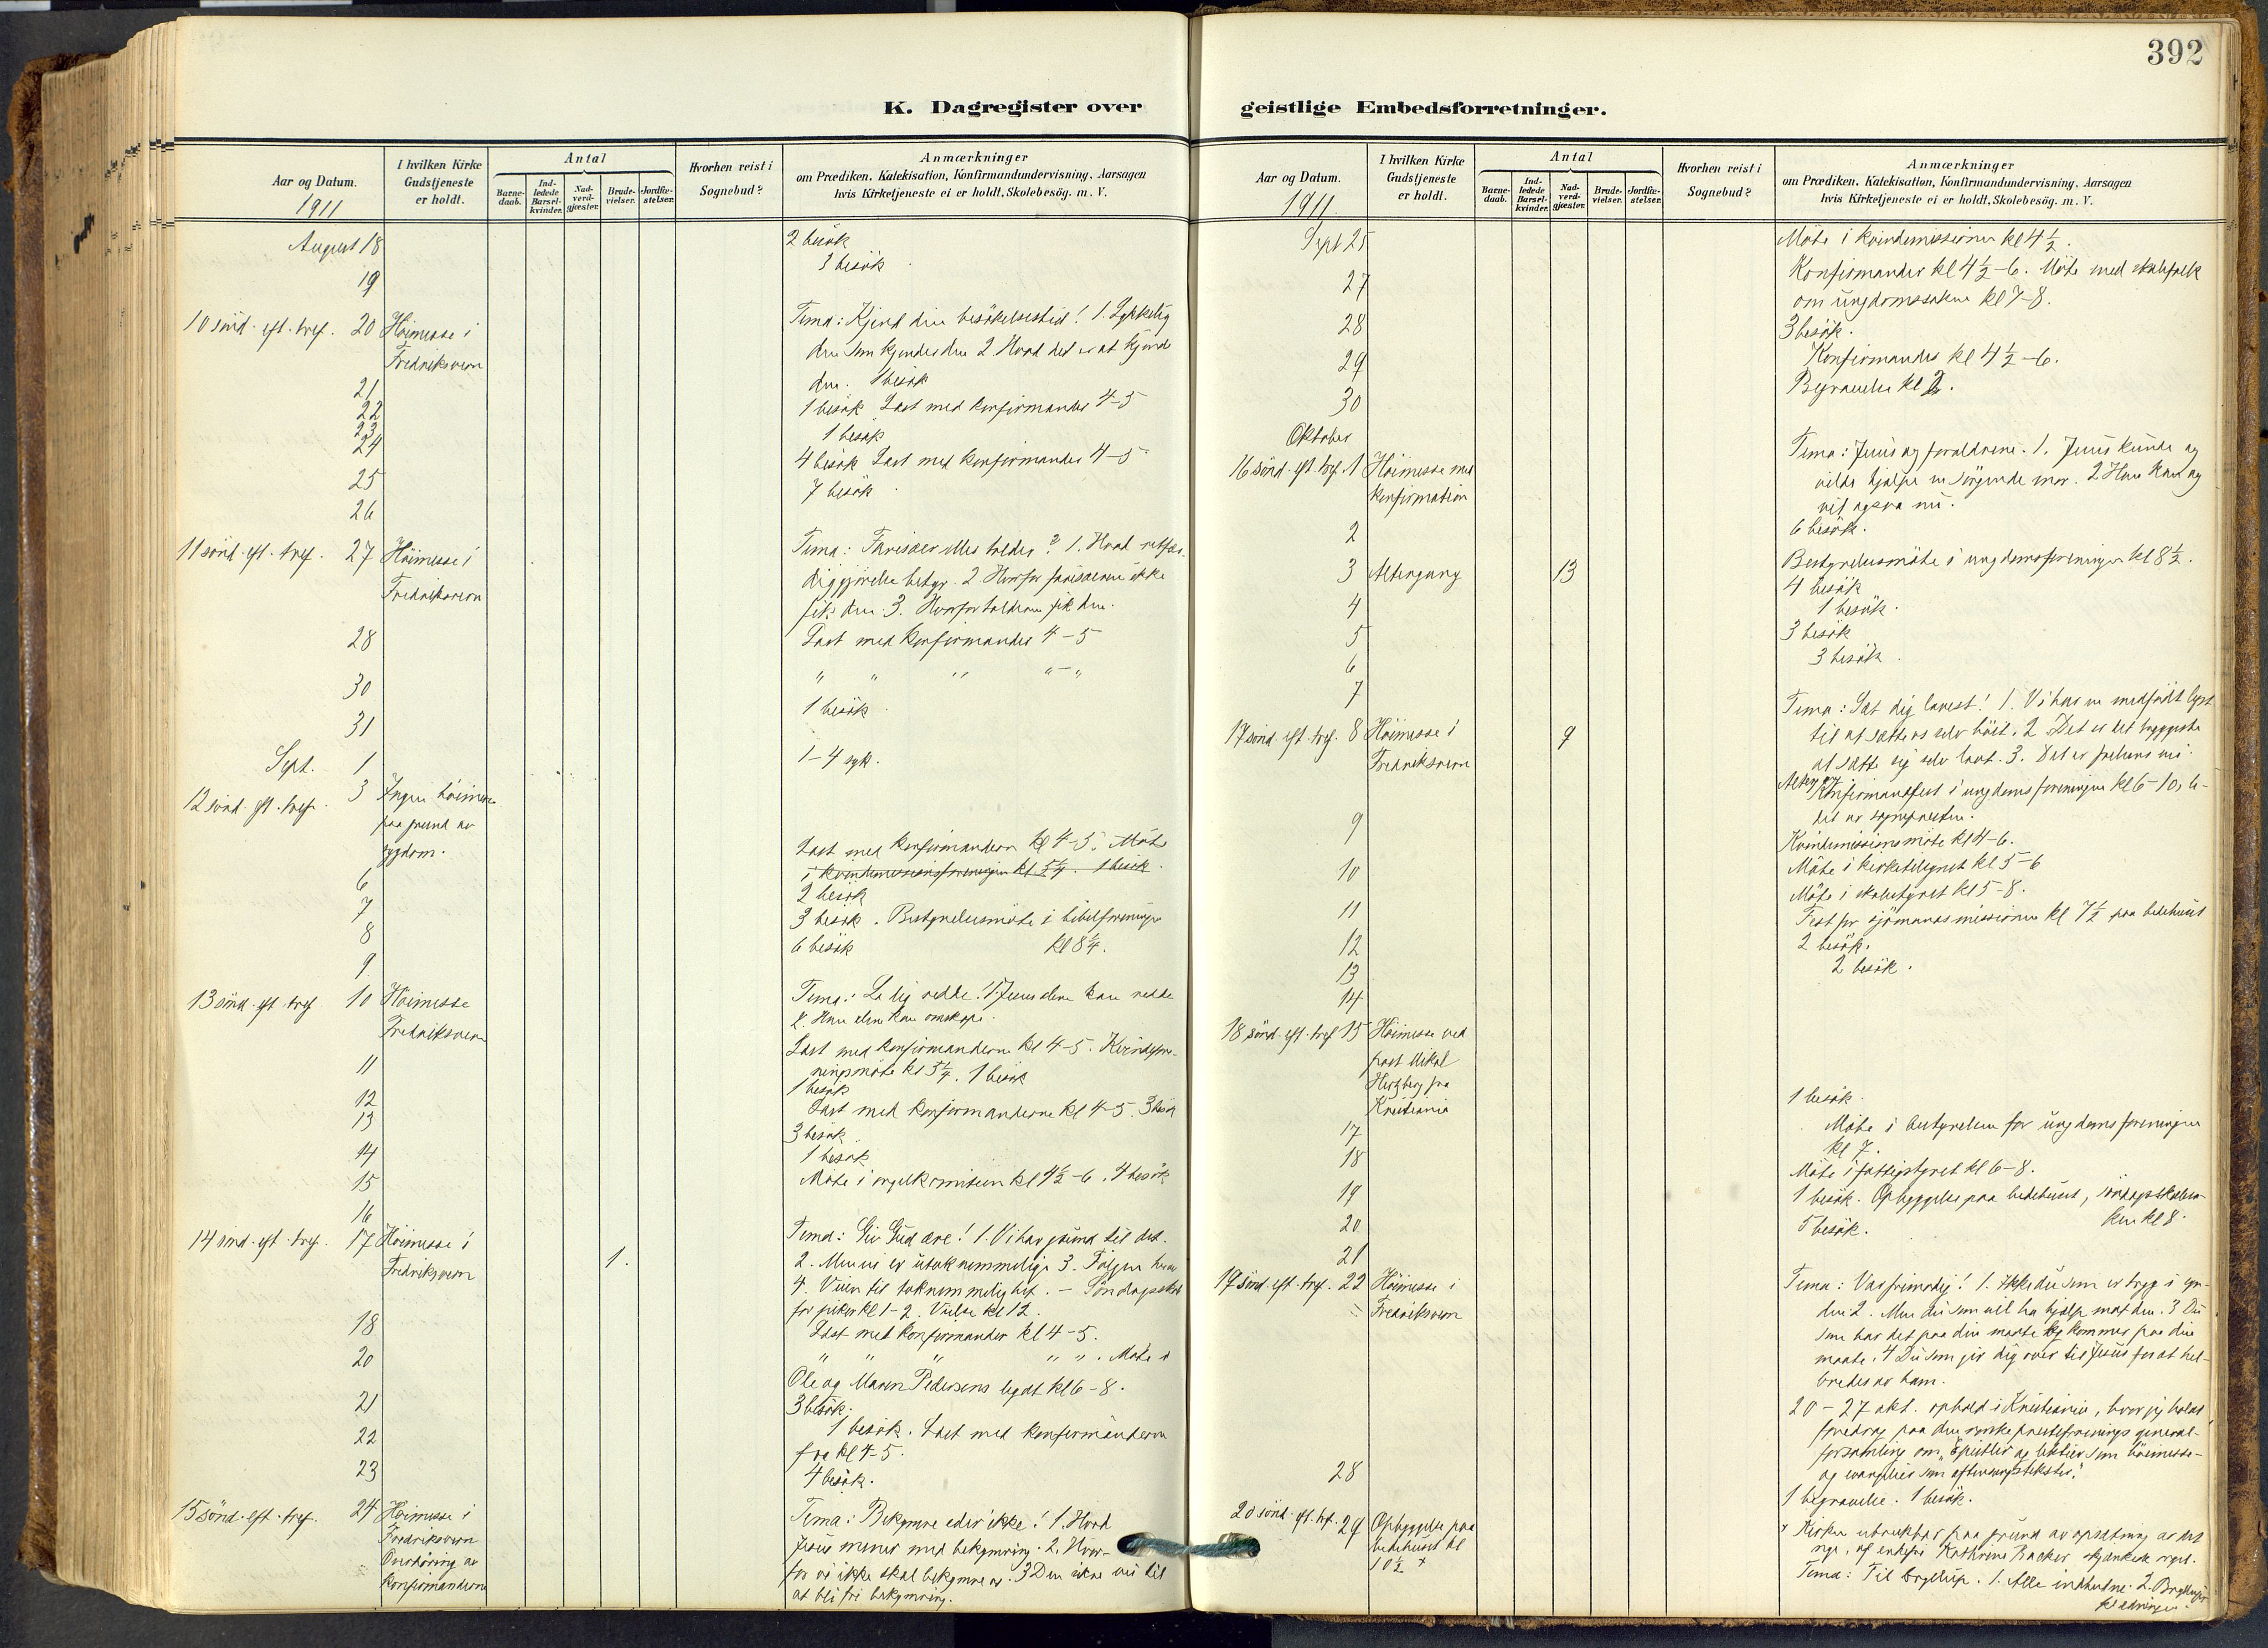 392
K. Dagregister over geistlige Embedsforretninger.
Aar og Datum.
1911
I hvilken Kirke
Gudstjeneste
er holdt.
Antal
Barne-
daab.
Ind-
ledede
Barsel-
kvinder.
Nad-
verd-
gjæster.
Brude-
vielser.
Jordfæ-
stelser.
Hvorhen reist i
Sognebud?
Anmærkninger
om Prædiken, Katekisation, Konfirmandundervisning, Aarsagen
hvis Kirketjeneste ei er holdt, Skolebesög. m. V.
August 18
2 besök
19
3 besök
10 sönd. eft. tref. 20 Höimesse i
Fredriksvern
Tema: Kjend din besökelsestid! 1. Lykkelig
den som kjender den 2 Hvad det er at kjende
den. 1 besök
21
22
1 besök Læst med konfirmander 4-5
23
1 besök
24
4 besök Læst med konfirmander 4-5
25
7 besök
26
11 sönd. eft. tref. 27 Höimesse i
Fredriksvern
Tema: Farisæer eller tolder? 1. Hvad retfær-
diggjörelse betyr. 2 Hvorfor farisæeren ikke
fik den. 3. Hvorfor tolderen fik den.
28
Læst med konfirmander 4-5
30
" " " "-"
31
1 besök
Sept. 1
1-4 syk.
12 sönd. eft. tref. 3 Ingen höimesse
paa grund av
sygdom.
Læst med konfirmandern kl 4-5. Möte
i kvindemissionsforeningen kl 5 1/4. 1 besök
6
2 besök
7
3 besök. Bestyrelsesmöte i bibelforeningen
kl 8 1/4.
8
6 besök
9
13 sönd. eft. tref. 10 Höimesse
Fredriksvern
Tema: La dig redde! 1. Jesus alene kan redde
2. Han alene kan omskape.
11
Læst med konfirmanderne kl 4-5. Kvindefore-
ningsmöte kl 5 1/4. 1 besök
12
1 besök
13
Læst med konfirmanderne kl 4-5. 3 besök
14
3 besök
15
1 besök
16
Möte i orgelkomiteen kl 4 1/2-6. 4 besök
14 sönd. eft. tref. 17 Höimesse i
Fredriksvern
1.
Tema: Giv Gud ære! 1. Vi har grund til det.
2. Men vi er utaknemmelige 3. Fölgen herav
4. Veien til taknemmelighet. - Söndagsskole
for piker kl 1-2. Vielse kl 12.
18
Læst med konfirmander kl 4-5.
20
" " " " ". Möte i
Ole og Maren Pedersens legat kl 6-8.
21
3 besök.
22
1 besök. Læst med konfirmandern
fra kl 4-5.
23
4 besök.
15 sönd. eft. tref. 24 Höimesse i
Fredriksvern
Overhöring av
konfirmanderne
Tema: Bekymre eder ikke! 1. Hvad
Jesus mener med bekymring. 2. Hvor-
for vi ikke skal bekymre os. 3 Den sikre vei til
at bli fri bekymring.
Aar og Datum.
1911.
I hvilken Kirke
Gudstjeneste
er holdt.
Antal
Barne-
daab.
Ind-
ledede
Barsel-
kvinder.
Nad-
verd-
gjæster.
Brude-
vielser.
Jordfæ-
stelser.
Hvorhen reist i
Sognebud?
Anmærkninger
om Prædiken, Katekisation, Konfirmandundervisning, Aarsagen
hvis Kirketjeneste ei er holdt, Skolebesög. m. V.
Sept 25
Möte i kvindemissionen kl 4 1/2.
27
Konfirmander kl 4 1/2-6. Möte med skolefolk
om ungdomssaken kl 7-8.
28
3 besök.
29
Konfirmander kl 4 1/2-6.
30
Begravelse kl 2.
Oktober
16 sönd. eft. tref. 1 Höimesse med
konfirmation
Tema: Jesus og forældrene. 1. Jesus kunde og
vilde hjælpe en sörgende mor. 2 Han kan og
vil ogsaa nu.
2
6 besök.
3 Altergang 13
Bestyrelsesmöte i ungdomsforeningen kl 8 1/2.
4
4 besök
5
1 besök.
6
3 besök
7
3 besök
17 sönd. eft. tref. 8 Höimesse i
Fredriksvern
9
Tema: Sæt dig lavest! 1. Vi har en medfödt lyst
til at sætte os selv höit. 2 Det er det tryggeste
at sætte sig selv lavt. 3. Det er frelsens vei.
Altergang
9
Konfirmandfest i ungdomsforeningen kl 6-10, le-
det av sognepresten.
10
Kvindemissionsmöte kl 4-6.
11
Möte i kirketilsynet kl 5-6
Möte i skolestyret kl 5-8.
12
Fest for sjömandsmissionen kl 7 1/2 paa bedehuset
13
2 besök.
14
2 besök.
18 sönd. eft. tref 15 Höimesse ved
past Mikal
Hertzberg fra
Kristiania
17
1 besök.
18
Möte i bestyrelsen for ungdomsforeningen
kl 7.
19
Möte i fattigstyret kl 6-8.
20
1 besök. Opbyggelse paa bedehuset,
kl 8.
21
5 besök.
19 sönd. eft. tref. 22 Höimesse i
Fredriksvern
Tema: Vær frimodig! 1. Ikke du som er tryg i syn-
den 2. Men du som vil ha hjælp mot den. 3 Du
som har det paa din maate og kommer paa din
maate. 4 Du som gir dig over til Jesus for at hel-
bredes av ham.
20-27 okt. ophold i Kristiania, hvor jeg holdt
foredrag paa den norske presteforenings general-
forsamling om "Epistler og lektier som höimesse-
og evangelier som aftensangstekster."
28
1 begravelse. 1 besök.
20 sönd. eft. tref. 29 Opbyggelse paa
bedehuset kl
10 1/2 +
+ Kirken ubrukbar paa grund av opsætning av det
nye, af enkefru Kathrine Backer skjænkede orgel.
Tema: Til bryllup. 1. Alle indbudne. 2. Bryllups-
klædningen.